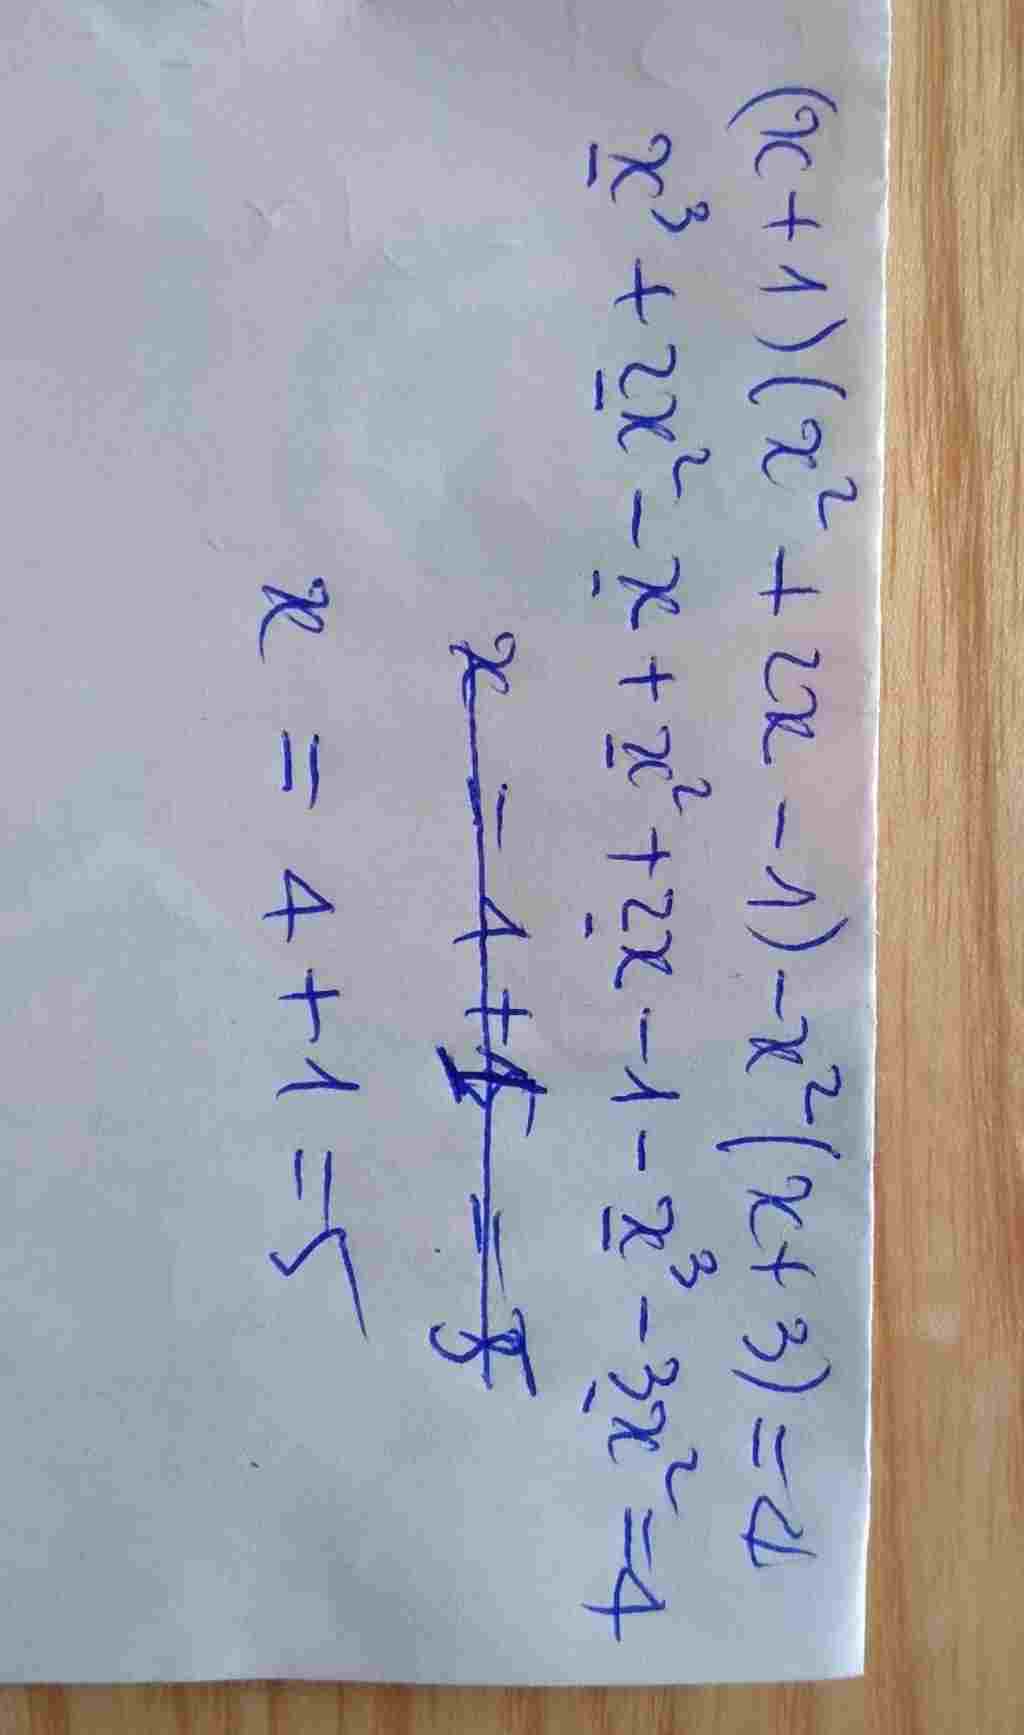 (x+1)(x²+2x-1)-x²(x+3)=4
x³+2x²-x+x²+2x-1-x³-3x²=4
x=4+1=5